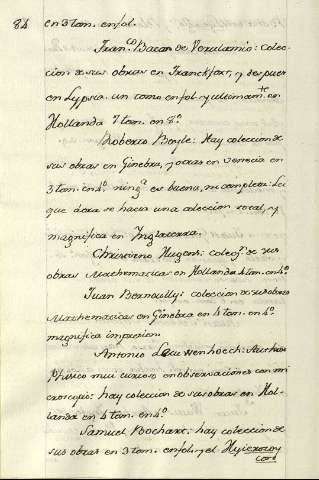 84 en 3 tom. en fol.
Fran.co Bacan de Verulamio: colec-
cion de sus obras en Franckfort, y despues
en Lypsia un tomo en fol. y ultimam.te en
Hollanda 7 tom. en 8.o
Roberto Boyle: Hay coleccion de
sus obras en Ginebra, y otras en Venecia en
3 tom. en 4.o ning.a es buena, ni completa: La
que ahora se hacia una coleccion total, y
magnifica en Inglaterra.
Christiano Hugens: colecç.n de sus
obras Mathematicas en Hollanda 4 tom. en 4.o
Juan Bernoully: coleccion de sus obras
Mathematicas en Ginebra en 4 tom. en 4.o
magnifica impresion.
Antonio Leuwenhoech: Author
Phisico mui curioso en observaciones con mi
croscopio: hay coleccion de sus obras en Hol-
landa en 4 tom. en 4.o
Samuel Bochart: hay coleccion de
sus obras en 3 tom. en fol. y el Hyierozoy
con